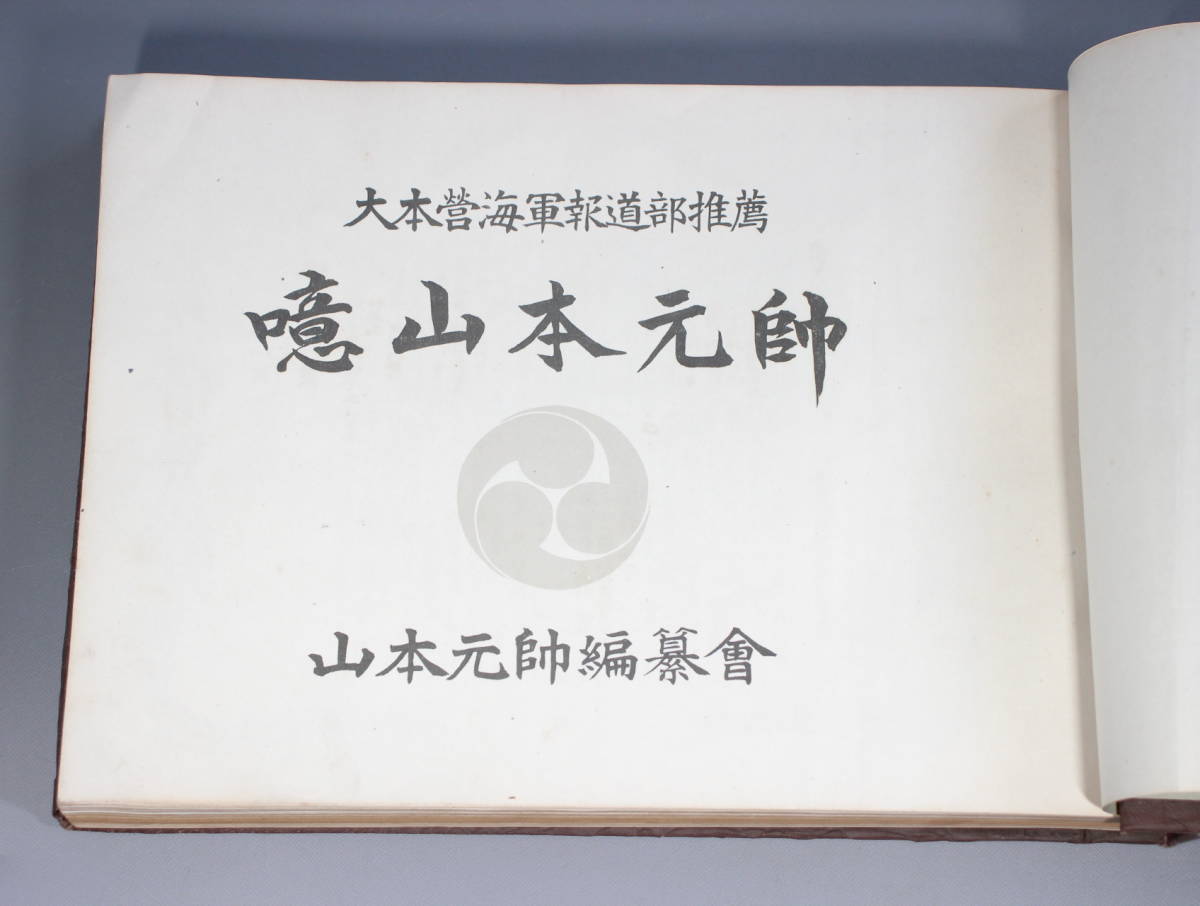 大本營海軍報道部推薦
噫山本元帥
山本元帥編纂會